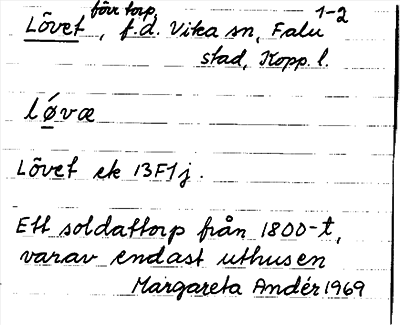 förr torp,
Lövet, f.d. Vika sn, Falu 1-2
stad, Kopp. l.
lǿvæ
Lövet ek 13F1j.
Ett soldattorp från 1800-t,
varav endast uthusen
Margareta Andér 1969